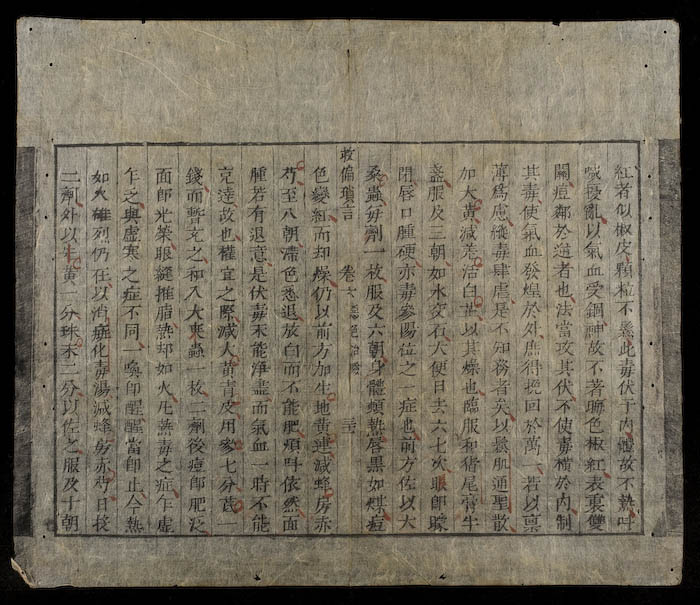 紅者似椒皮顆粒不鬆此毒伏于內也故不熱叶
喊擾亂以氣血受錮神故不著聯色椒紅表裏雙
關痘鄰於逆者也法當攻其伏不使毒橫於內制
其毒使氣血發煌於外庶得挽回於萬一若以稟
薄爲慮縱毒肆虐是不知務者矣以鬆肌通聖散
加大黃減羌活白芷以其燥也臨服和猪尾膏牛
盞服及三朝如水交石大便日去六七次眼即矇
閉唇口腫硬亦毒參陽位之一症也前方佐以大
桑蟲每劑一枚服及六朝身體煩熱唇黑如煤痘
救偏瑣言 卷 色治驗 三十
色變紅而却燥仍以前方加生地黃連減蜂房赤
芍至八朝滯色悉退放白而不能肥煩叶依然面
腫若有退意是伏毒未能淨盡而氣血一時不能
克達故也權宜之際減大黃青皮用參七分芪一
錢而暫充之和入大桑蟲一枚二劑後痘即肥泛
面即光榮眼縫推脂熱却如火兀熱毒之症乍虛
乍乏與虛寒之症不同一喚即醒醒當即止今熱
如火雖烈仍在以消斑化毒湯減蜂房赤芍日投
二劑外以牛黃一分珠末二分以佐之服及十朝